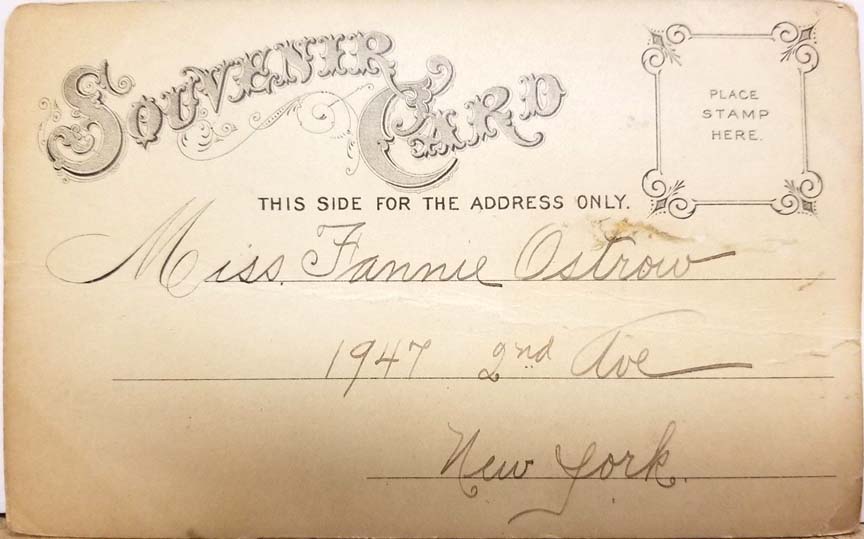 SOUVENIR CARD
PLACE
STAMP
HERE.
THIS SIDE FOR THE ADDRESS ONLY.
Miss. Fannie Ostrow
1947 2nd Ave
New York.